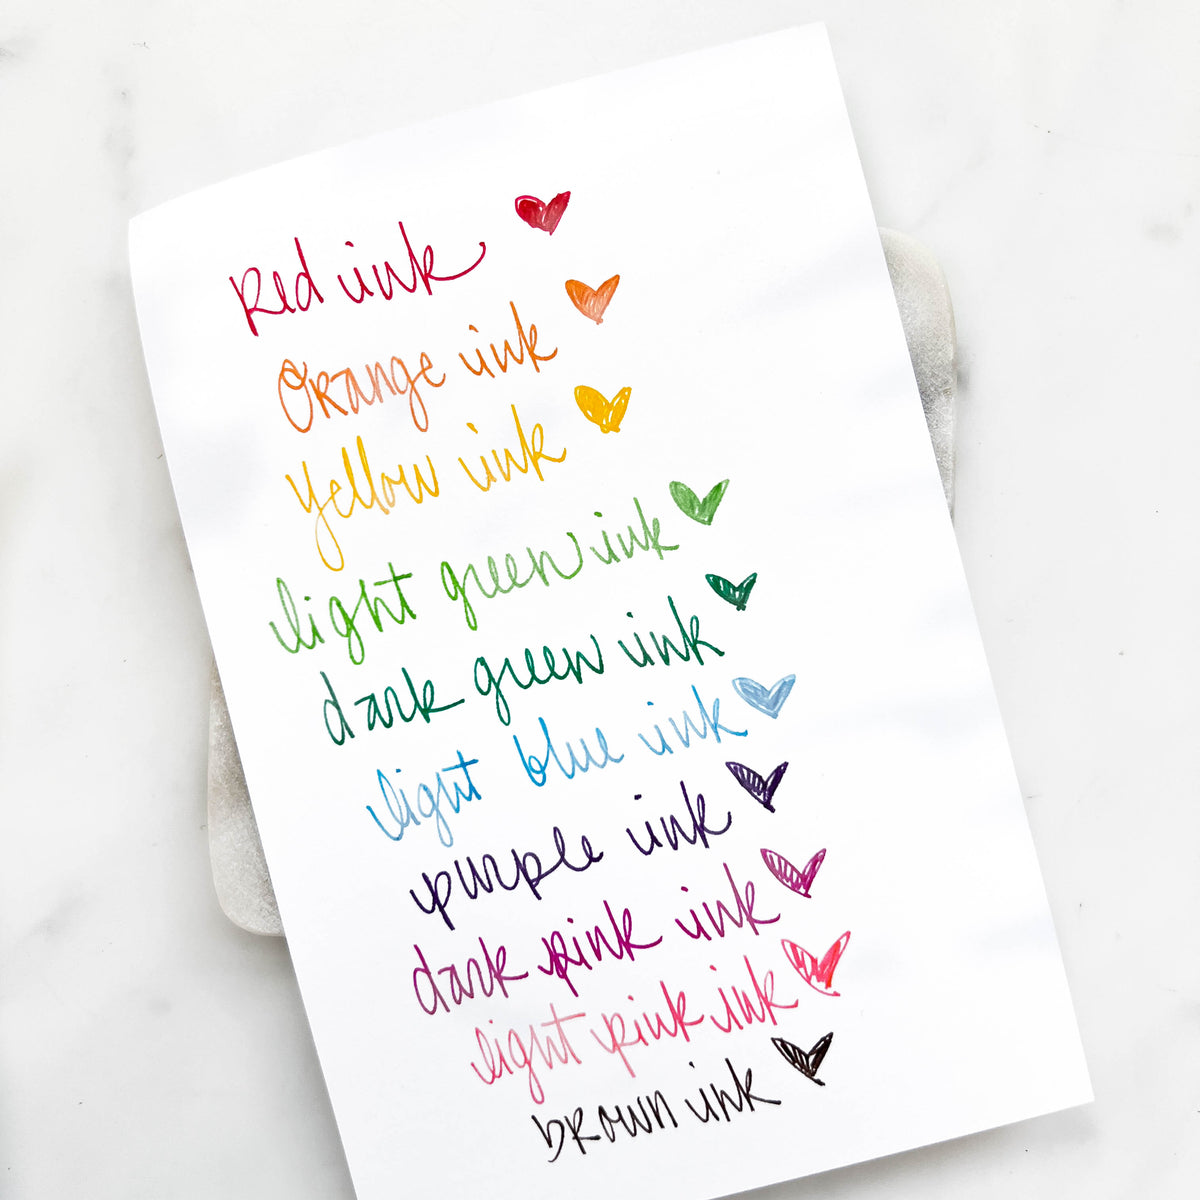 Red ink
Orange ink
Yellow ink
light green ink
dark green ink
light blue ink
purple ink
dark pink ink
light pink ink
brown ink